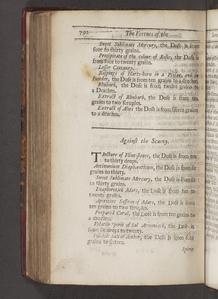 792 The Vertues of the
Sweet Sublimate Mercury, the Dose is from
four to thirty grains.
Precipitate of the colour of Roses, the Dose is
from four to twenty grains.
Lesser Centaury,
Raspings of Harts-horn in a Ptisan, and in
Powder, the Dose is from ten grains to a drachm.
Rhubarb, the Dose is from twenty grains to
a Drachm.
Extract of Rhubarb, the Dose is from ten
grains to two scruples.
Extract of Aloes the Dose is from grains
to a drachm.
Against the Scurvy.
Tincture of the Dose is from ten
to thirty drops.
Antimonium Diaphoreticum, the Dose is from six
to thirty grains.
Sweet Sublimate Mercury, the Dose is from six
to thirty grains.
Mars, the Dose is from ten
to twenty grains.
Aperitive Saffron of Mars, the Dose is from
ten grains to two scruples.
Prepared Coral, the Dose is from ten grains to
a drachm.
Volatile Spirit of Sal Armoniack, the Dose is
from six drops to twenty.
Volatile Salt of Amber, the Dose is from
grains to sixteen.
Spirit